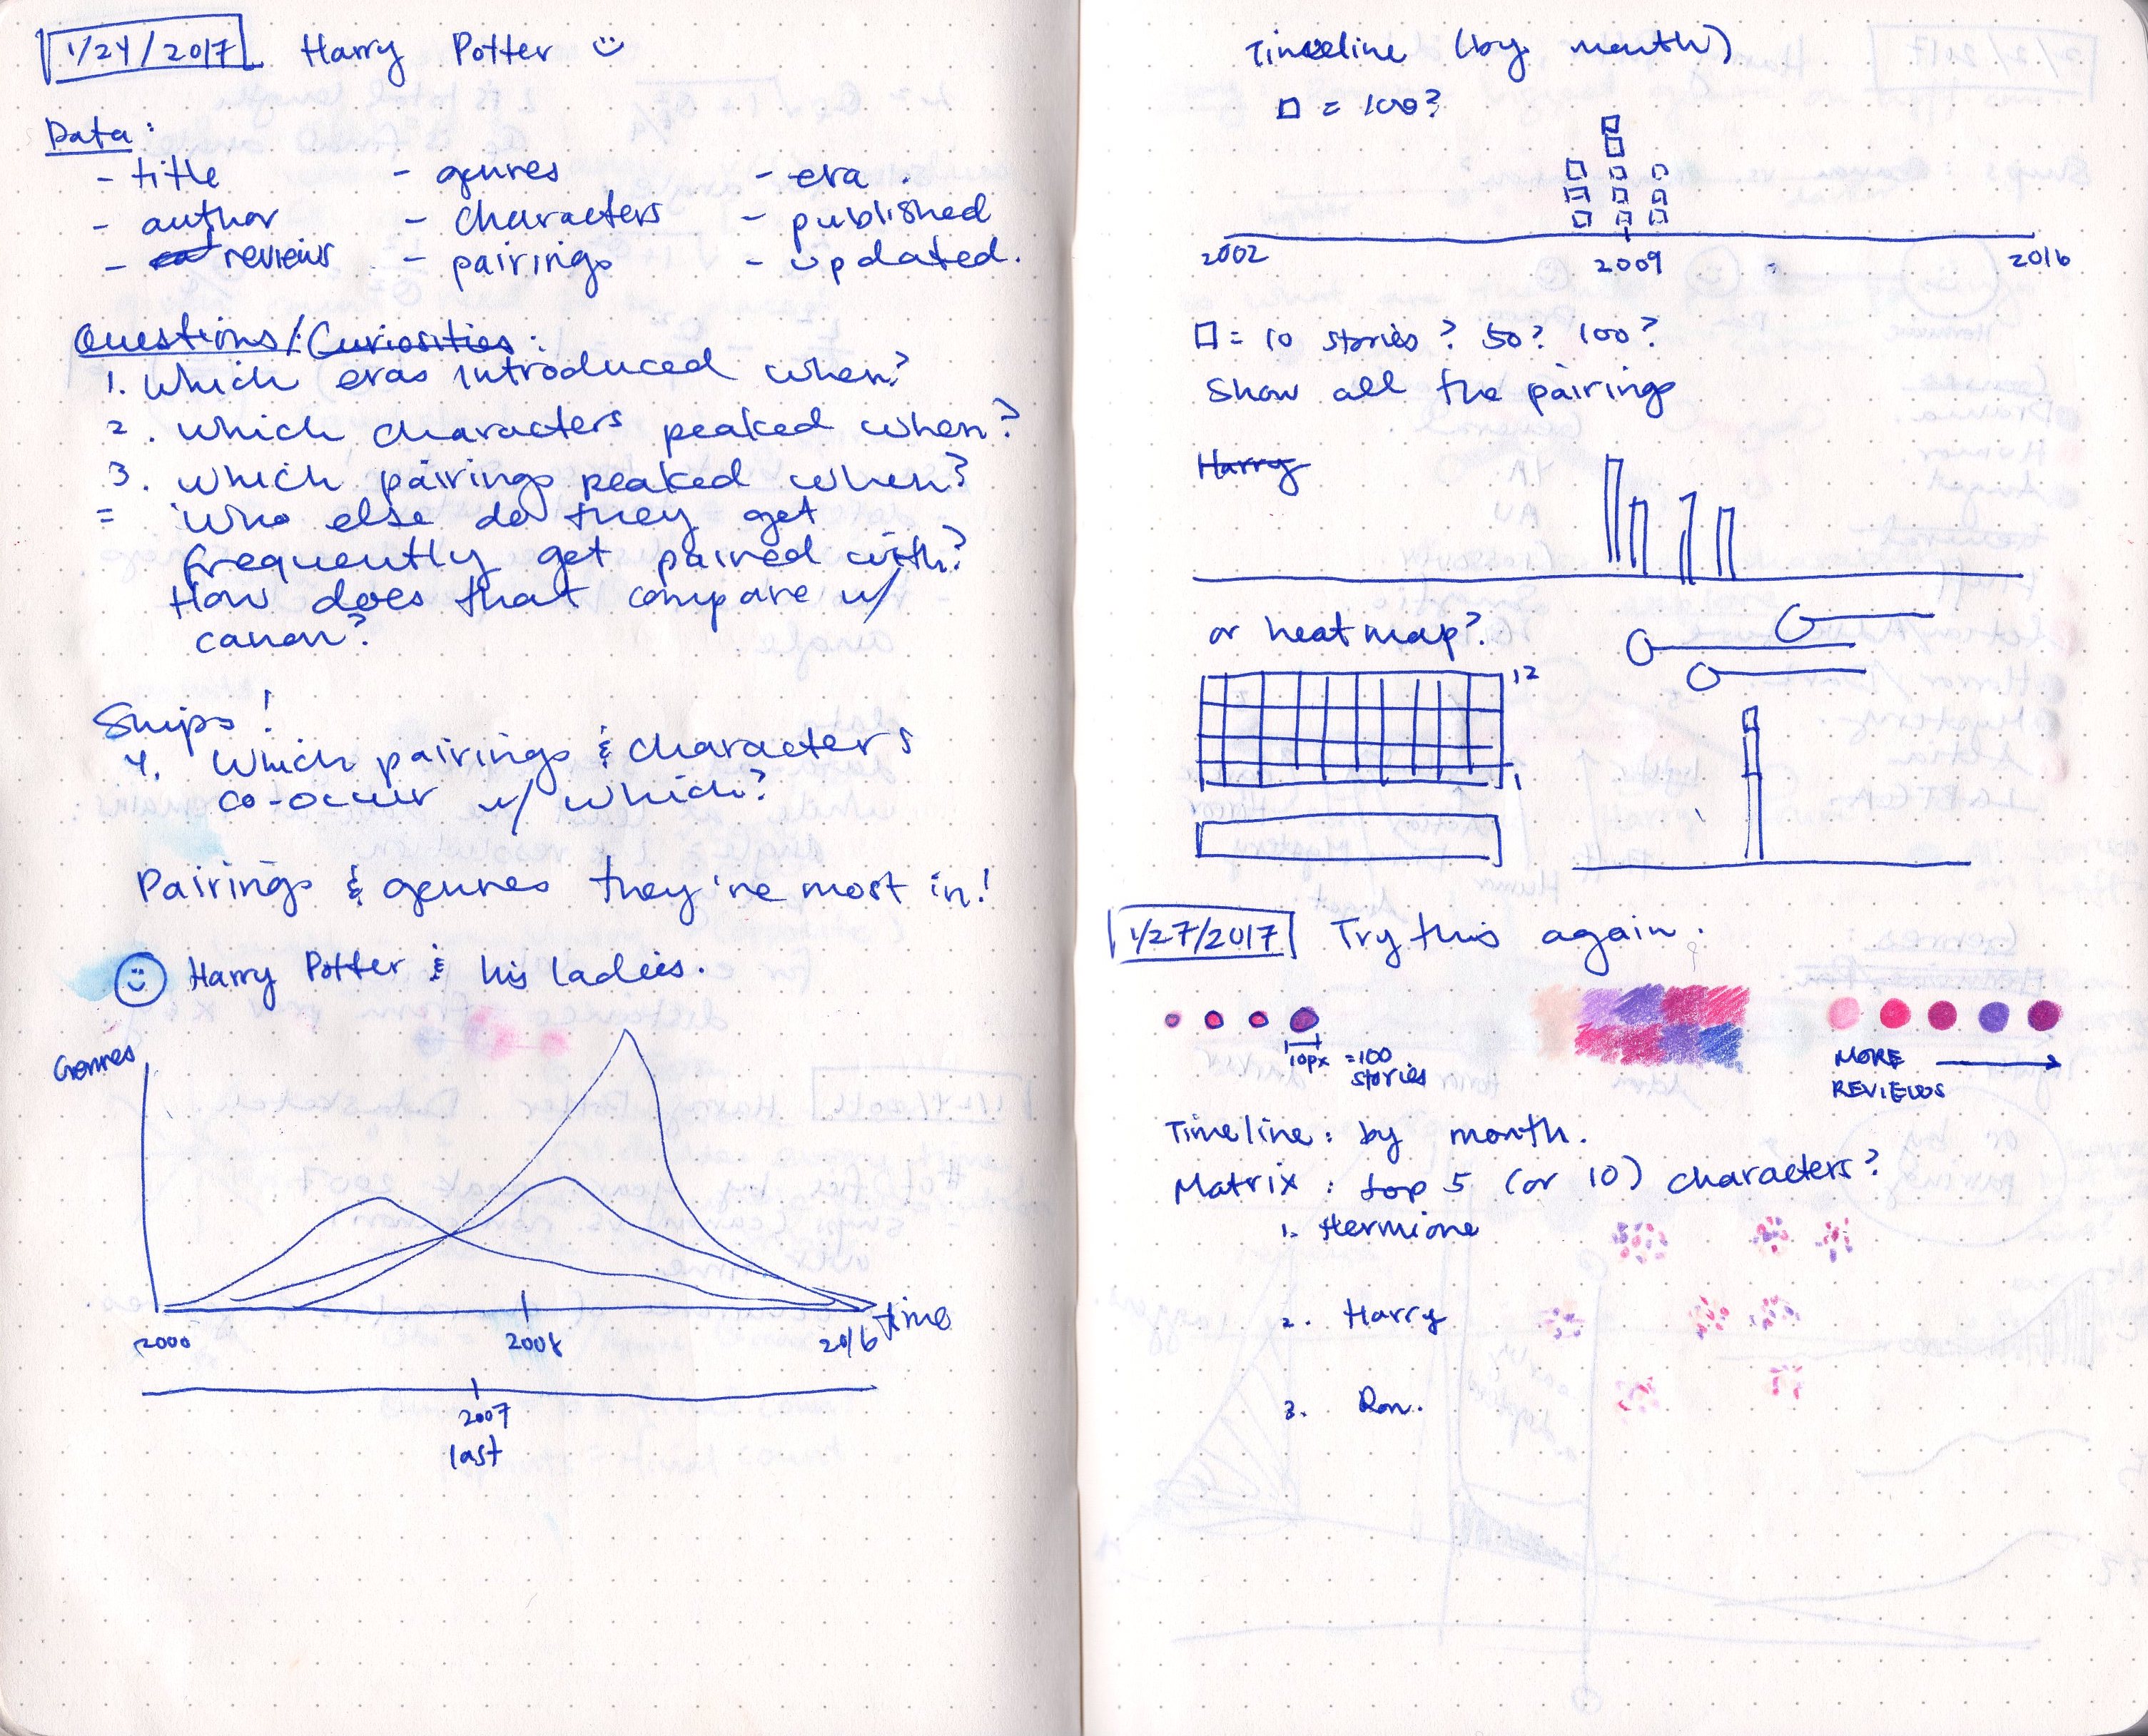 1/24/2017 Harry Potter
Data:
- title - genres - era.
- author - characters - published
- reviews - pairings - updated.
Questions/Curiosities:
1. Which eras introduced when?
2. which characters peaked when?
3. which pairings peaked when?
= Who else do they get
frequently get paired with?
How does that compare w/
canon?
Ships!
4. Which pairings & characters
co-occur w/ which?
Pairings & genres they're most in!
Harry Potter & his ladies.
Genres
2000 2008 2016 time
2007
last
Timeline (by month)
□ = 100?
2002 2009 2016
□ = 10 stories? 50? 100?
Show all the pairings
Harry
or heatmap?
12
1
1/27/2017 Try this again.
10px =100
stories
MORE
REVIEWS
Timeline: by month.
Matrix: top 5 (or 10) characters?
1. Hermione
2. Harry
3. Ron.